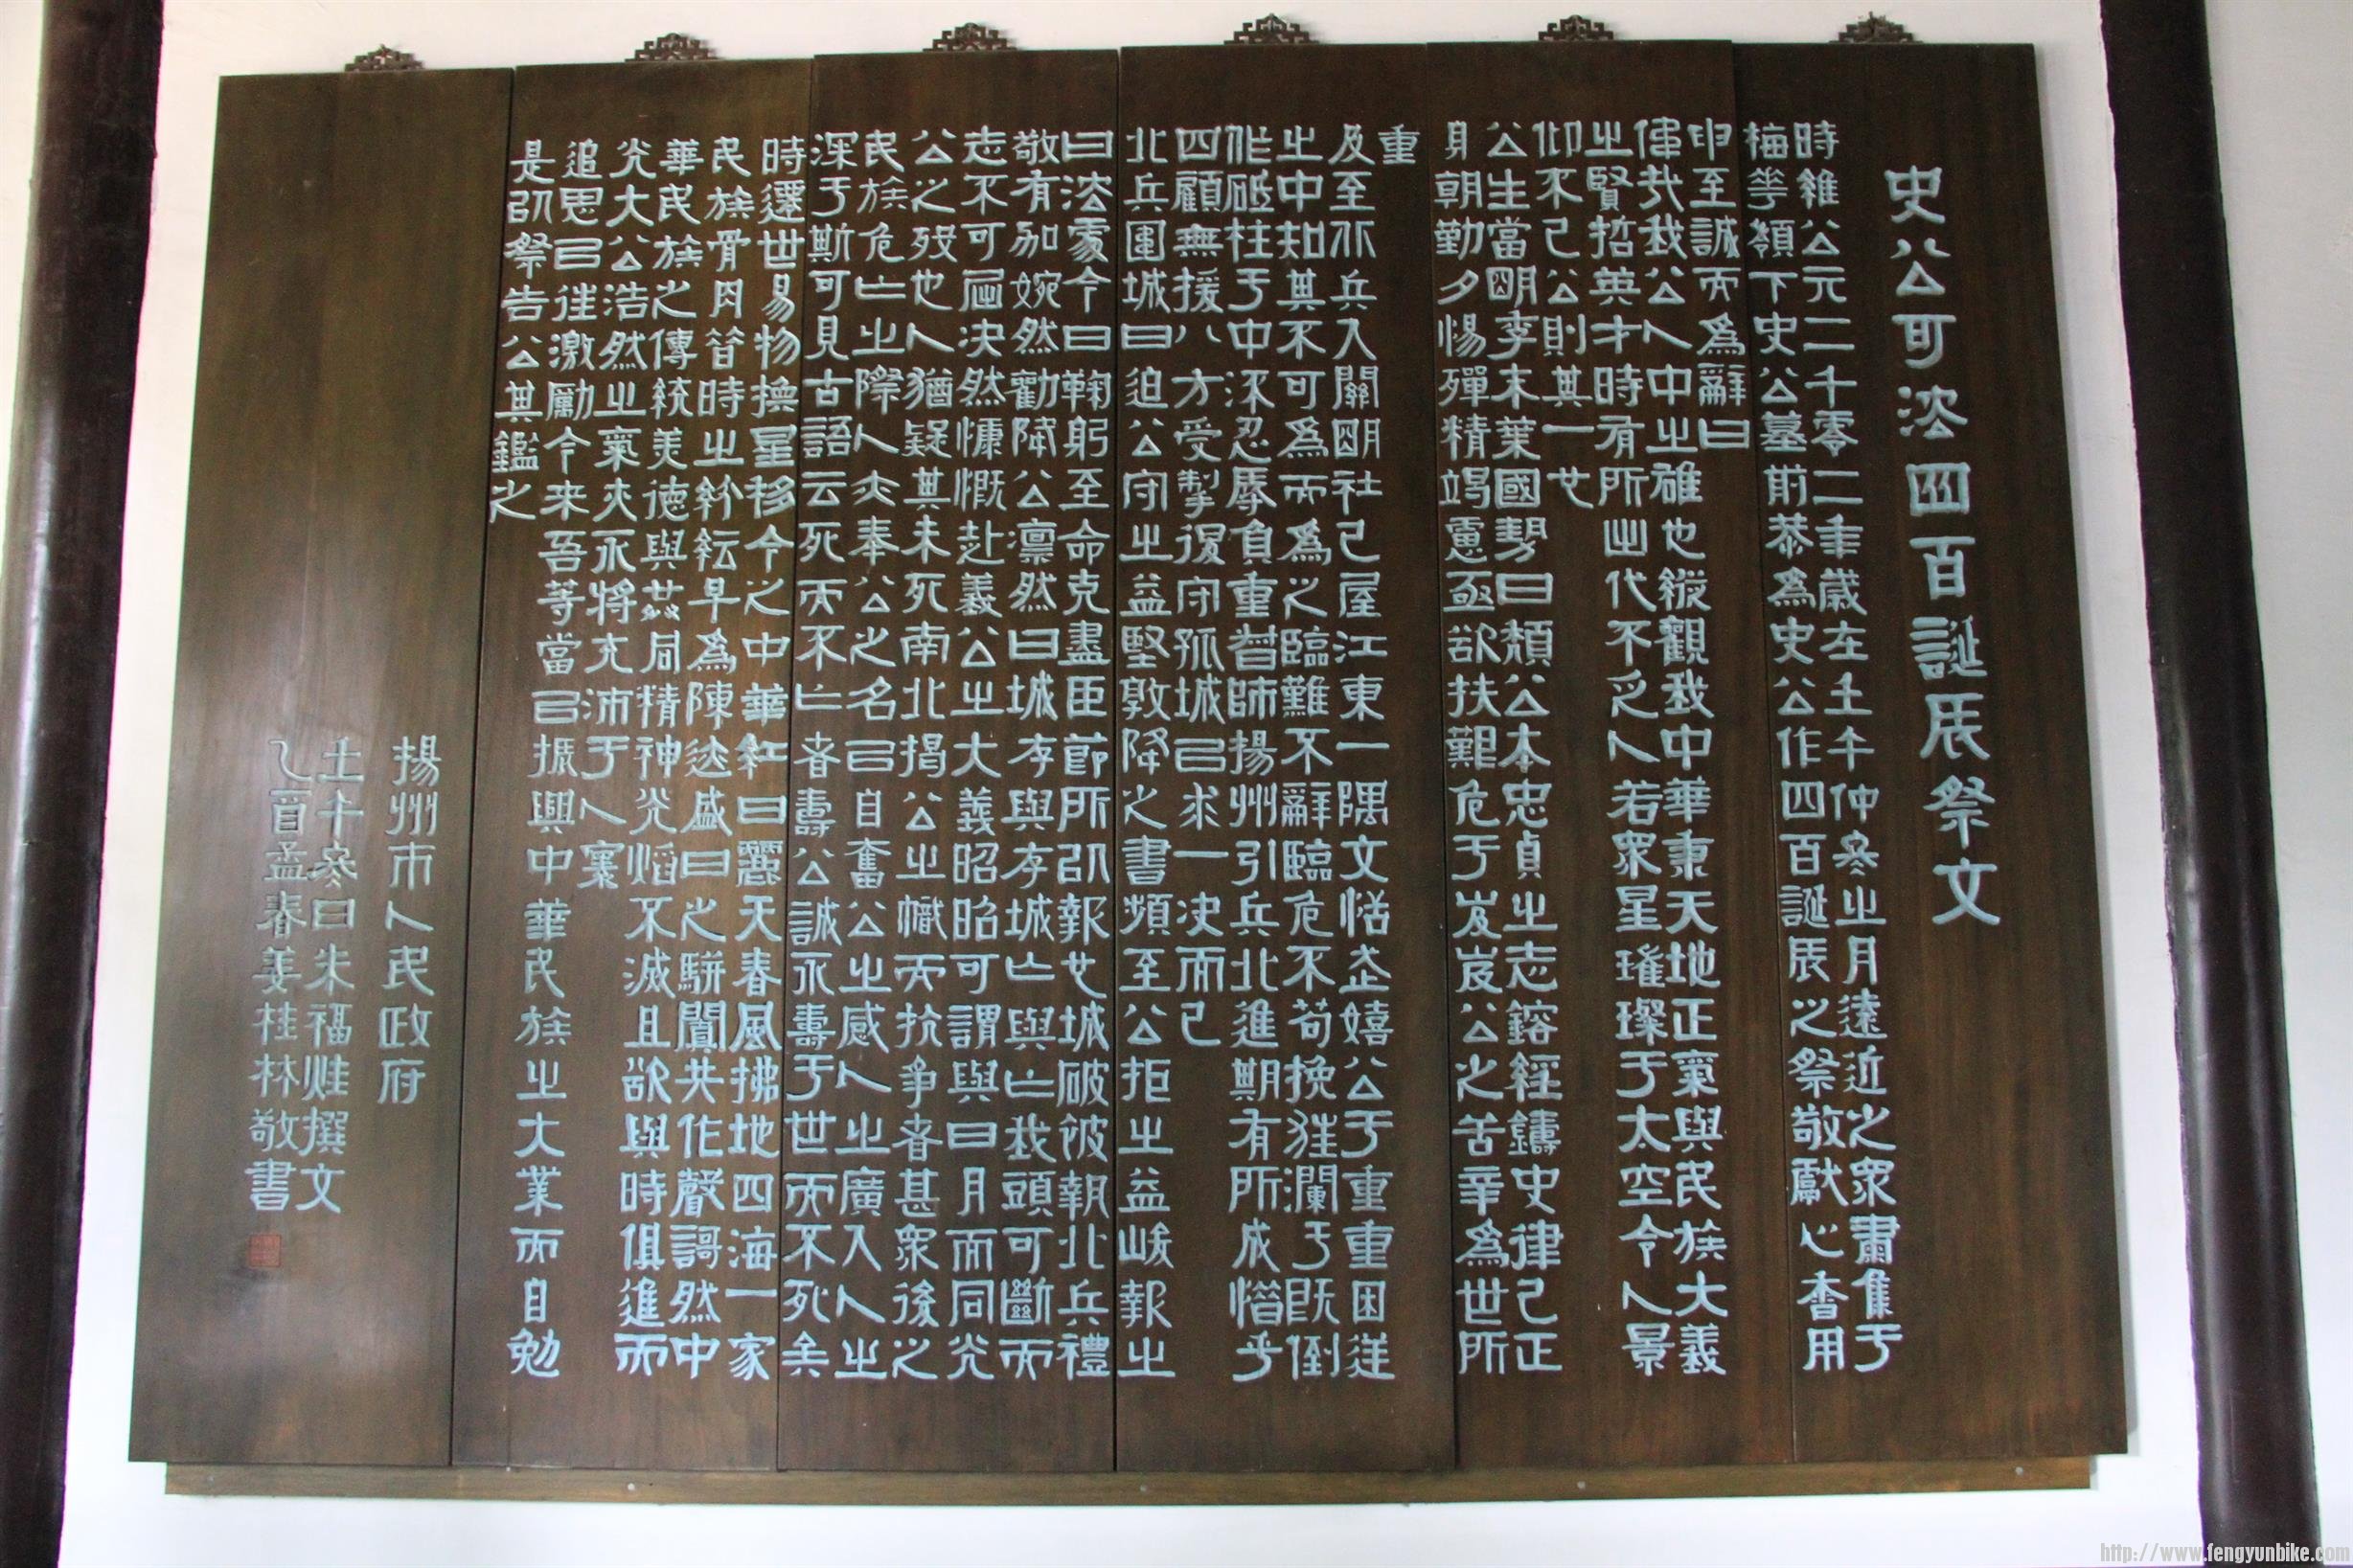 史公可法四百誕辰祭文
時維公元二千零二年歲在壬午仲冬之月遠近之眾肅集于
梅華嶺下史公墓前恭為史公作四百誕辰之祭敬獻心香用
申至誠而為辭曰
偉哉我公人中之雄也縱觀我中華秉天地正氣與民族大義
之賢哲英才時有所出代不乏人若眾星璀璨于太空令人景
仰不已公則其一也
公生當明季末葉國勢日頹公本忠貞之志鎔經鑄史律己正
身朝勤夕惕殫精竭慮亟欲扶艱危于岌岌公之苦辛為世所
重
及至北兵入關明社已屋江東一隅文恬武嬉公于重重困逆
之中知其不可為而為之臨難不辭臨危不苟挽狂瀾于既倒
作砥柱于中深忍辱負重督師揚州引兵北進期有所成惜乎
四顧無援八方受掣復守孤城以求一決而已
北兵圍城日迫公守之益堅敦降之書頻至公拒之益峻報之
曰法處今日鞠躬至命克盡臣節所以報也城破彼執北兵禮
敬有加婉然勸降公凛然曰城存與存城亡與亡我頭可斷而
志不可屈決然慷慨赴義公之大義昭昭可謂與日月而同光
公之歿也人猶疑其未死南北揭公之幟而抗爭者甚眾後之
民族危亡之際人亦奉公之名以自奮公之感人之廣入人之
深于斯可見古語云死而不亡者壽公誠永壽于世而不死矣
時還世易物換星移今之中華紅日麗天春風拂地四海一家
民族骨肉昔時之紛紜早為陳迹盛日之駢闐共作聲謌然中
華民族之傳統美德與共同精神光焰不滅且欲與時俱進而
光大公浩然之氣亦永將充沛于人寰
追思已往激勵今來吾等當以振興中華民族之大業而自勉
是以祭告公其鑑之
揚州市人民政府
壬午冬日朱福烓撰文
乙酉孟春姜桂林敬書
http://www.fengyunbike.com